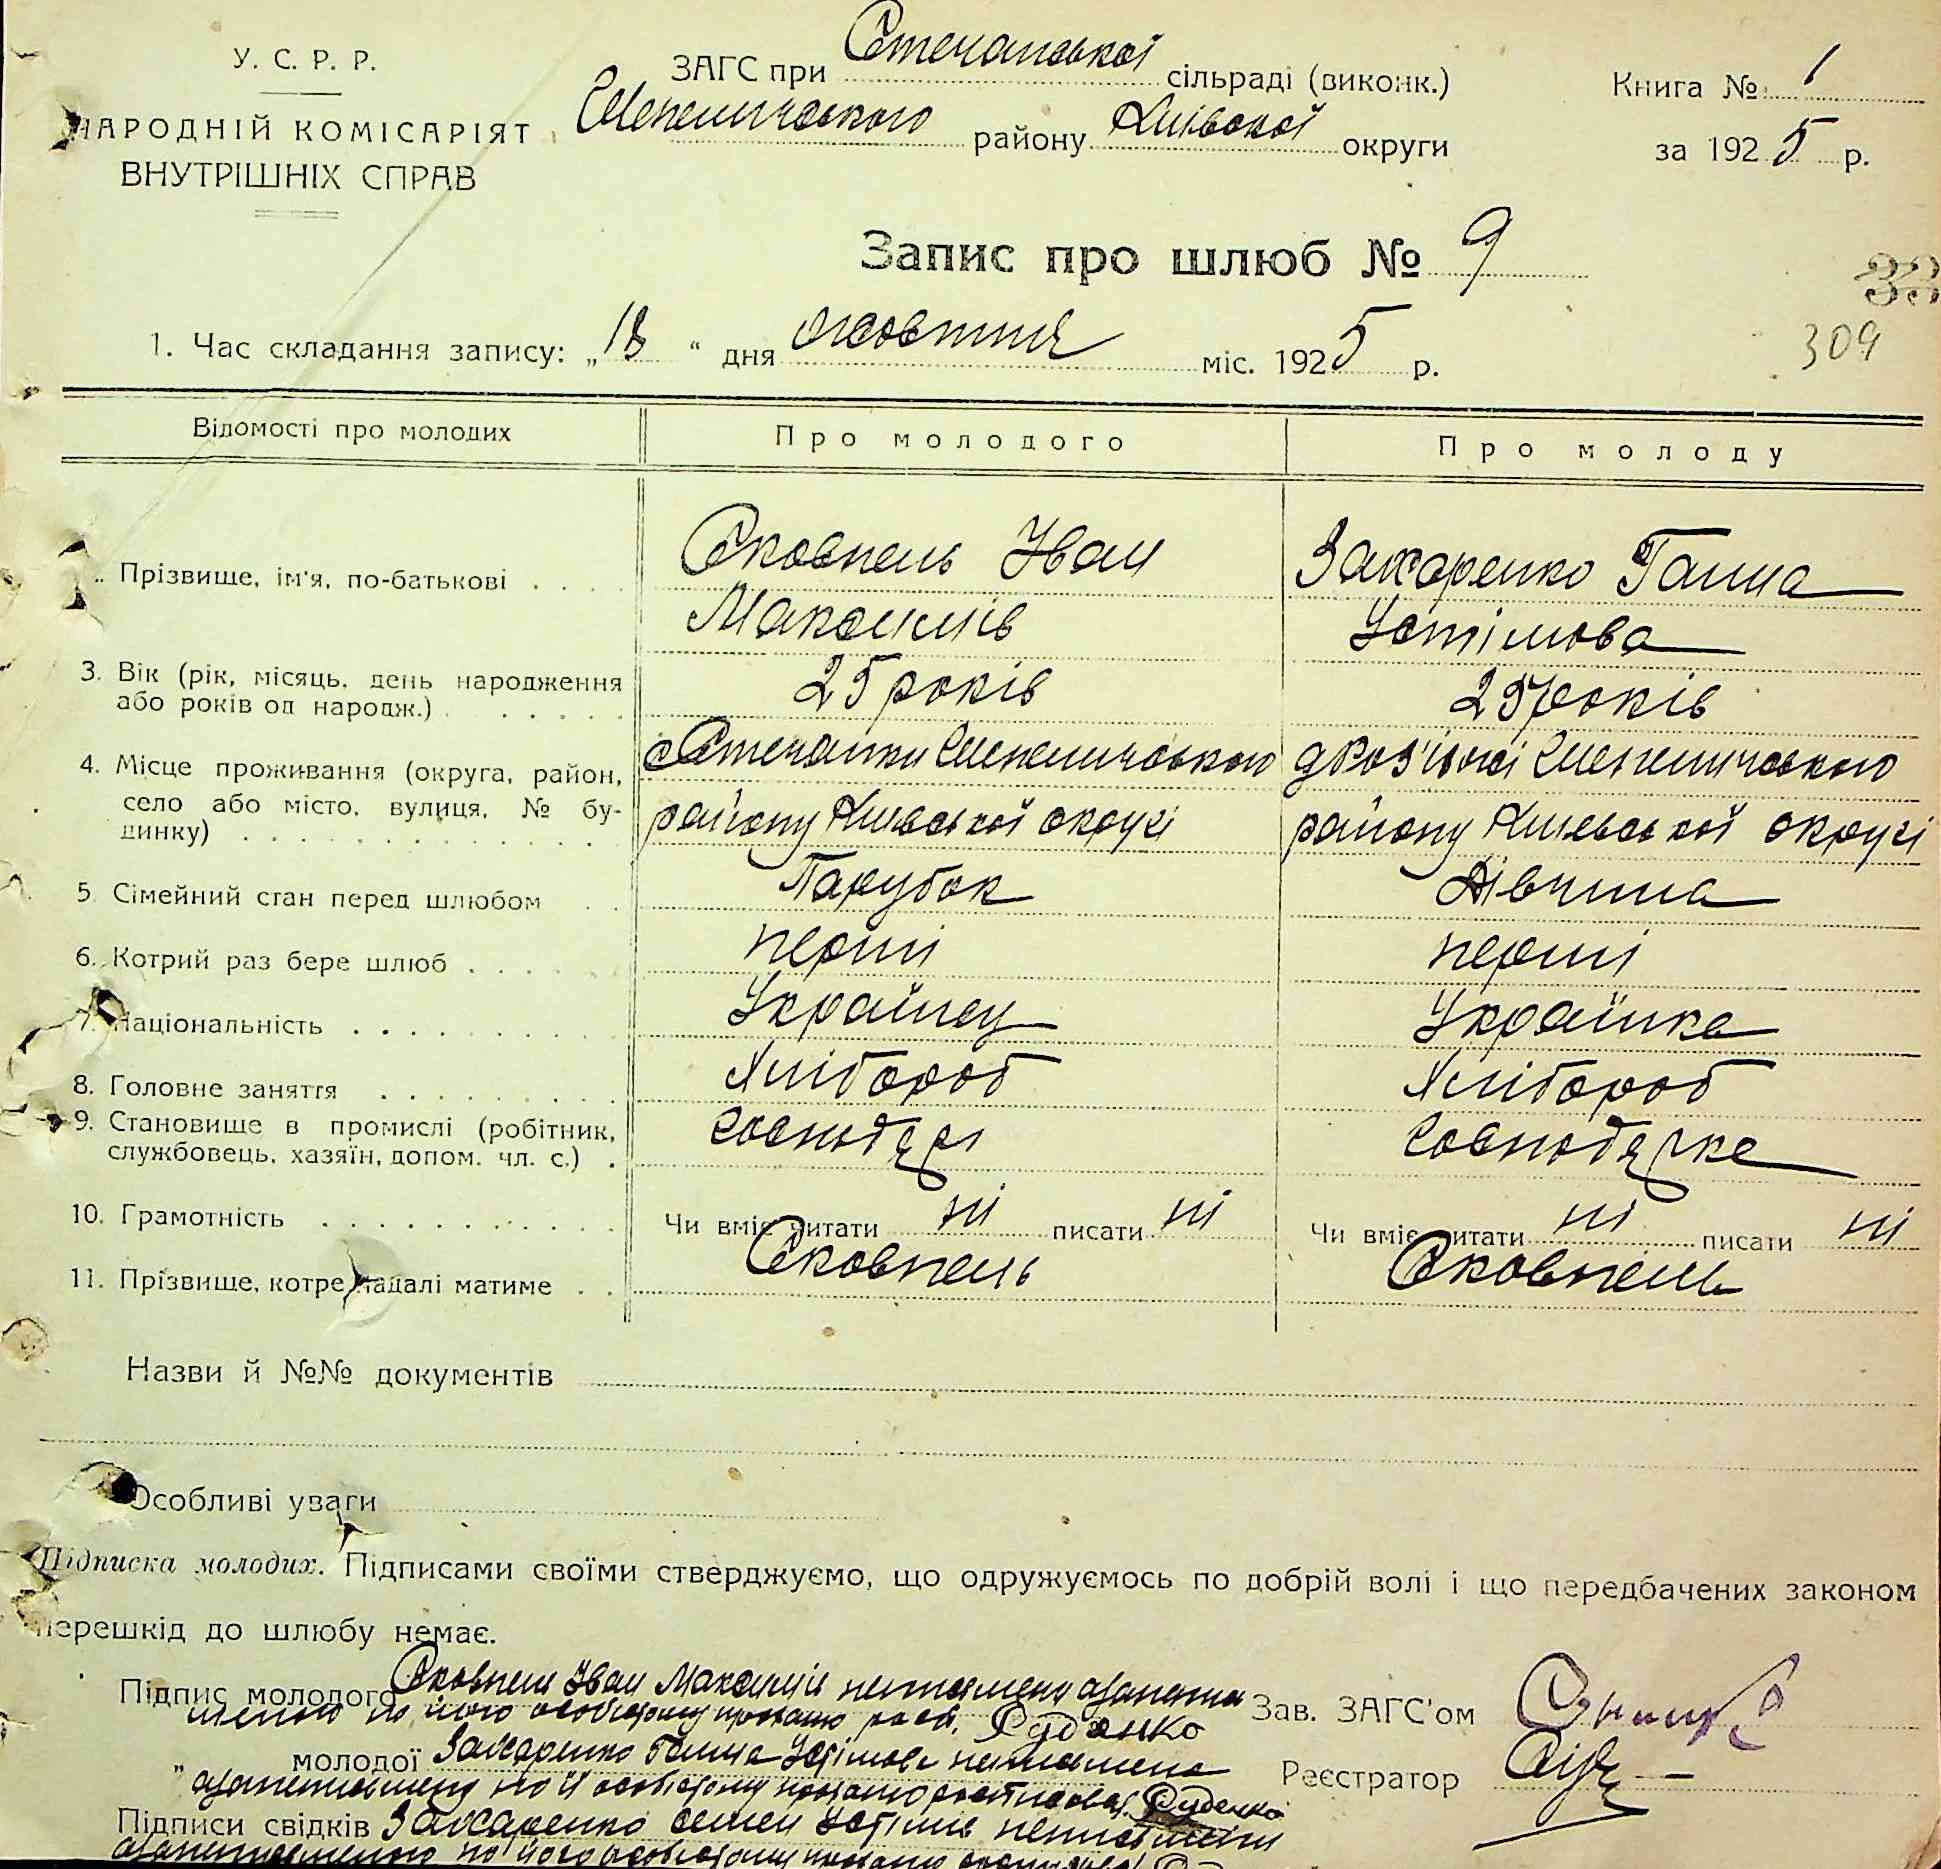 У. С. Р. Р.
НАРОДНІЙ КОМІСАРІЯТ
ВНУТРІШНІХ СПРАВ
ЗАГС при Стечанської сільраді (виконк.)
Шепелицького району Київської округи
Книга № 1
за 1925 р.
Запис про шлюб № 9
33
309
1. Час складання запису: „13“ дня жовтня міс. 1925 р.
Відомості про молодих Про молодого Про молоду
Прізвище, ім'я, по-батькові Сковпень Іван Захаренко Ганна
Максимів Устімова
3. Вік (рік, місяць, день народження 25 років 25 років
або років од народж.)
4. Місце проживання (округа, район, с Стечанки Шепелицького д Роз'їжої Шепелицького
село або місто, вулиця, № бу- району Київської округі району Київської округі
динку)
5. Сімейний стан перед шлюбом Парубок Дівчина
6. Котрий раз бере шлюб перші перші
7. Національність Українец Українка
8. Головне заняття Хлібороб Хлібороб
9. Становище в промислі (робітник, Господарь Господарка
службовець, хазяїн, допом. чл. с.)
10. Грамотність Чи вміє читати ні писати ні Чи вміє читати ні писати ні
11. Прізвище, котре надалі матиме Сковпень Сковпень
Назви й №№ документів
Особливі уваги
Підписка молодих. Підписами своїми стверджуємо, що одружуємось по добрій волі і що передбачених законом
перешкід до шлюбу немає.
Підпис молодого Сковпень Іван Максимів
по його Руденко
Зав. ЗАГС'ом
„ молодої Захаренко Ганна Устімова неписьмена
по її Руденко
Реєстратор
Підписи свідків Захаренко Семен Устімів
по його